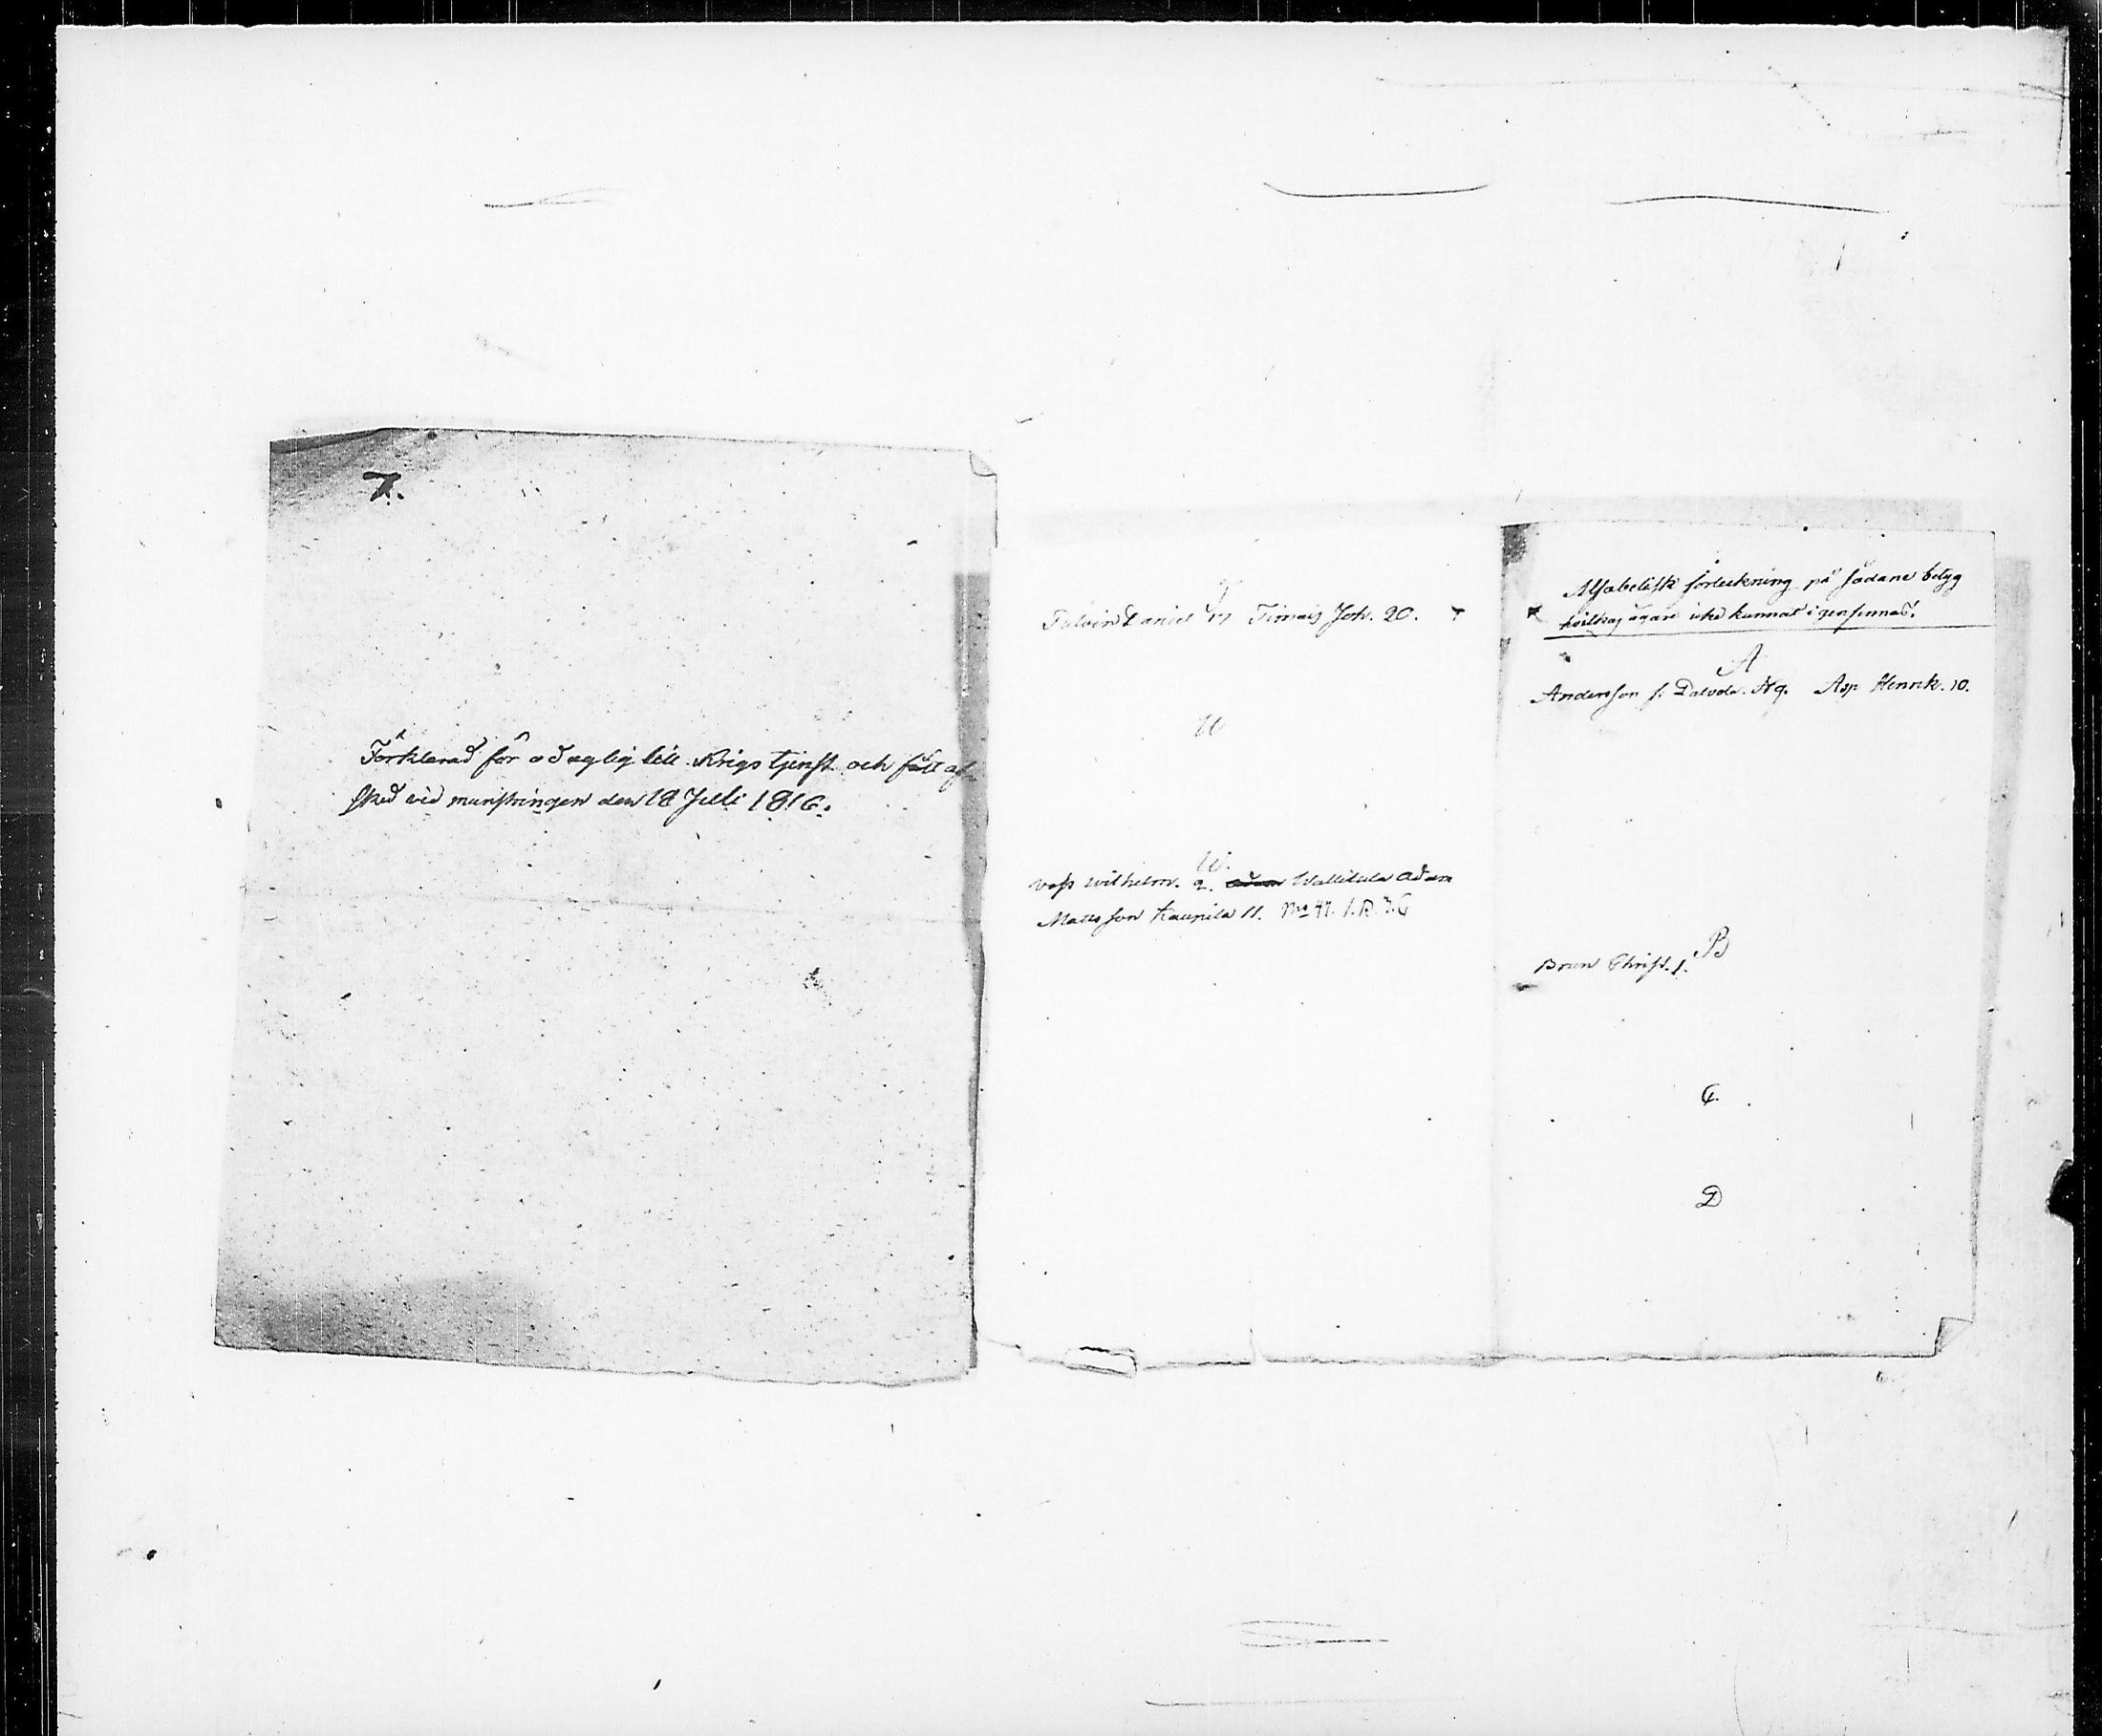 Förklarad för oduglig till Krigstjenst och fått af-
sked vid mönstringen den 18 Juli 1816.
T
Daniel 17 Timais Joh. 20.
U
W.
Voss Wilhelm. 9. Adam Wallitula Adam
Mattsson Kaunila 11. No 47.
Alfabetisk förteckning på sådane betyg
hvilkas ägare icke kunnat igenfinnas.
A
Andersson Asp Henrik. 10.
B
Brun Christ. 1.
C.
D